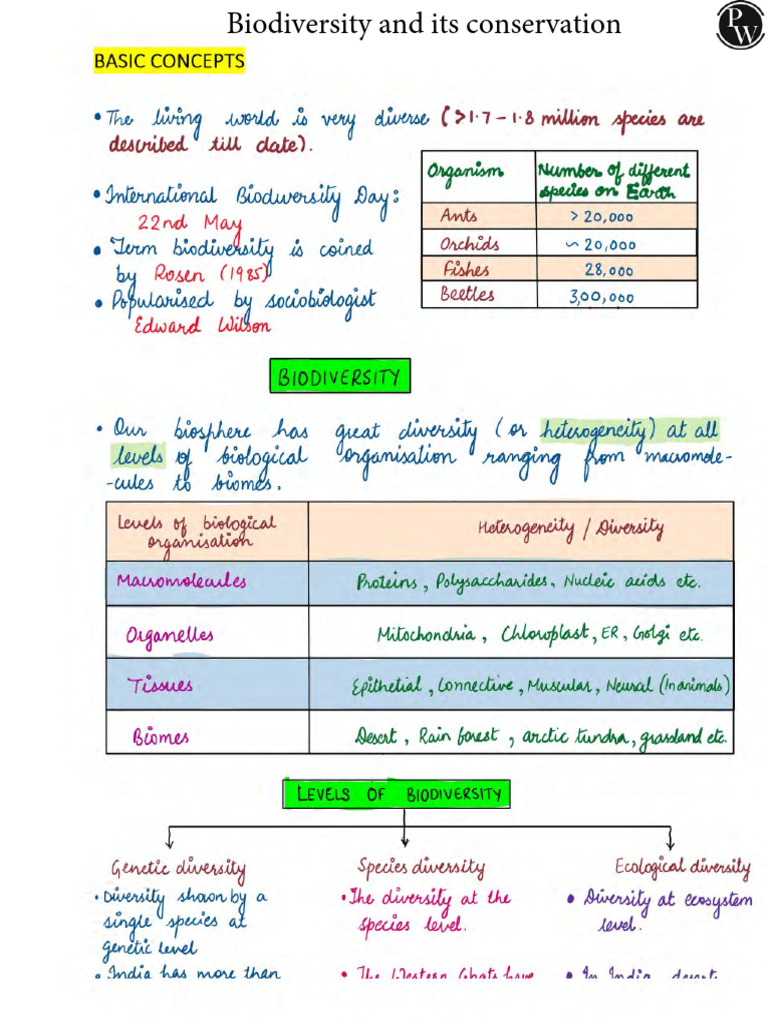 Biodiversity and its conservation
PW
BASIC CONCEPTS
• The living world is very diverse (>1.7 – 1.8 million species are
described till date).
• International Biodiversity Day:
22nd May
• Term biodiversity is coined
by Rosen (1985)
• Popularised by sociobiologist
Edward Wilson
Organism Number of different
species on Earth
Ants > 20,000
Orchids ~ 20,000
Fishes 28,000
Beetles 3,00,000
BIODIVERSITY
• Our biosphere has great diversity (or heterogeneity) at all
levels of biological organisation ranging from macromole-
-cules to biomes.
Levels of biological
organisation
Heterogeneity / Diversity
Macromolecules Proteins, Polysaccharides, Nucleic acids etc.
Organelles Mitochondria, Chloroplast, ER, Golgi etc.
Tissues Epithetial, Connective, Muscular, Neural (In animals)
Biomes Desert, Rain forest, arctic tundra, grassland etc.
LEVELS OF BIODIVERSITY
Genetic diversity
• Diversity shown by a
single species at
genetic level
• India has more than
Species diversity
• The diversity at the
species level.
• The Western Ghats have
Ecological diversity
• Diversity at ecosystem
level.
• In India, desert